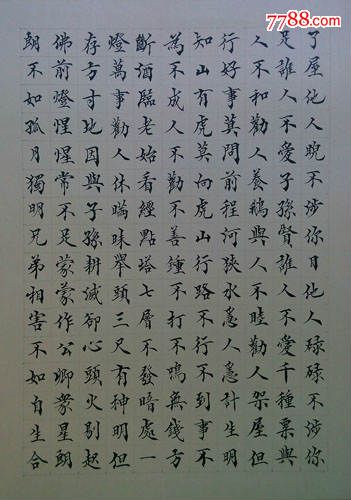 7788.com
了屋他人睨不涉你目他人碌碌不涉你
足誰人不愛子孫賢誰人不愛千種粟與
人不和勸人養鵝與人不睦勸人架屋但
行好事莫問前程河狹水急人急計生明
知山有虎莫向虎山行路不行不到事不
為不成人不勸不善鐘不打不鳴無錢方
斷酒臨老始看經點塔七層不發暗處一
燈萬事勸人休瞞昧舉頭三尺有神明但
存方寸地因與子孫耕滅卻心頭火剔起
佛前燈惺惺常不足蒙蒙作公卿眾星朗
朗不如孤月獨明兄弟相害不如自生合